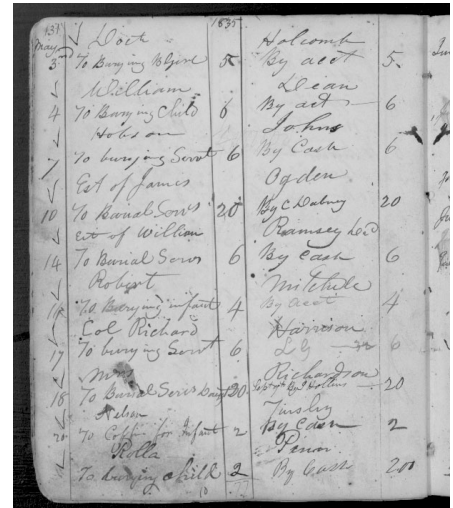 131 1835
Doct Holcomb
May 3rd To Burying B Girl 5 By acct 5.
William Dean
4 To Burying Child 6 By act 6
Hobson Johns
7 To burying Servt 6 By Cash 6
Est of James Ogden
10 To Burial Servs 20 By C Dabney 20
Est of William Ramsey Decd
14 To Burial Servs 6 By Cash 6
Robert Mitchell
16 To Burying infant 4 By acct 4
Col Richard Harrison
17 To burying Servt 6 6
Richardson
18 To Burial Servs 20 20
Nelson Tinsley
20 To Coffin for Infant 2 By Cash 2
Rolla Penn
To burying child 2 By Cash 2 00